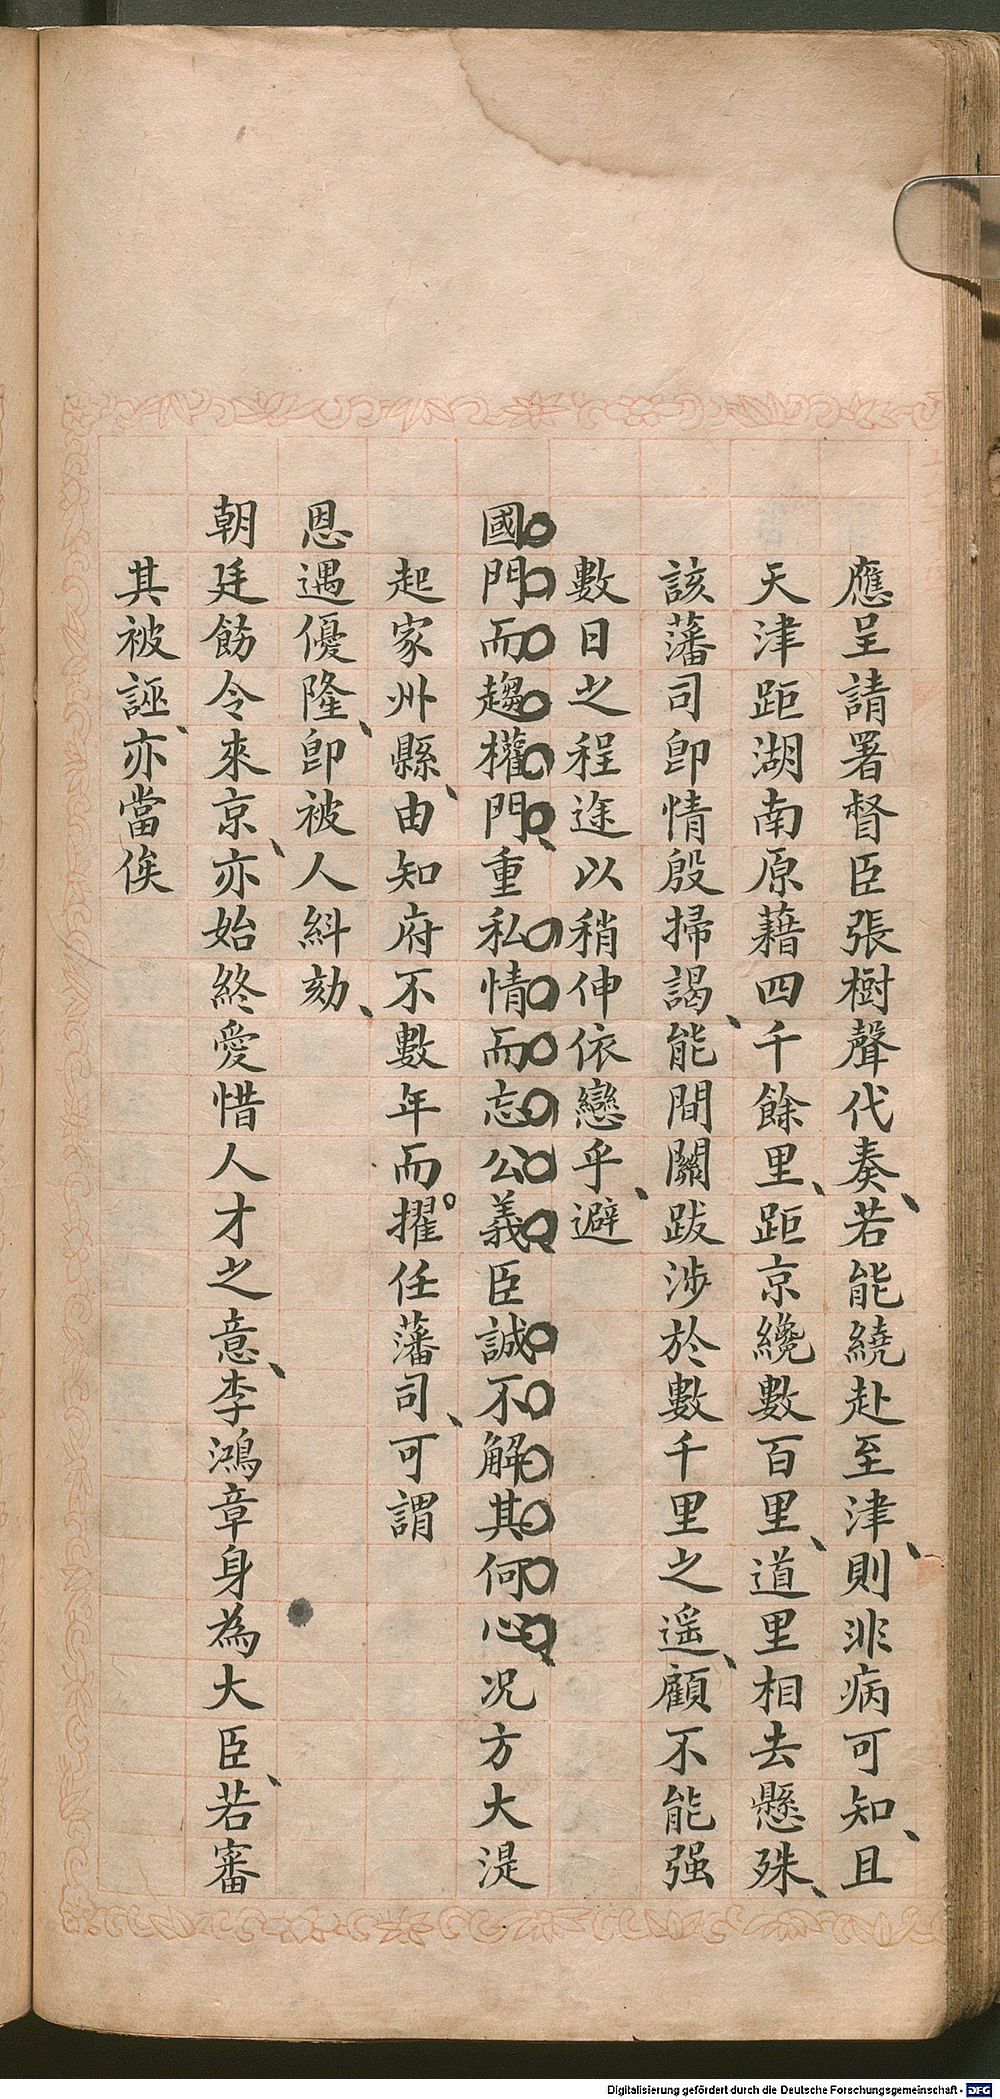 應呈請署督臣張樹聲代奏、若能繞赴至津、則非病可知、且
天津距湖南原藉四千餘里、距京纔數百里、道里相去懸殊、
該藩司卽情殷掃謁、能間關跋涉於數千里之遥、顧不能强
數日之程途以稍伸依戀乎、避
國門而趨權門、重私情而忘公義、臣誠不解其何心、况方大湜
起家州縣、由知府不數年而擢任藩司、可謂
恩遇優隆、卽被人糾劾、
朝廷飭令來京、亦始終愛惜人才之意、李鴻章身為大臣、若審
其被誣、亦當俟
Digitalisierung gefördert durch die Deutsche Forschungsgemeinschaft - DFG